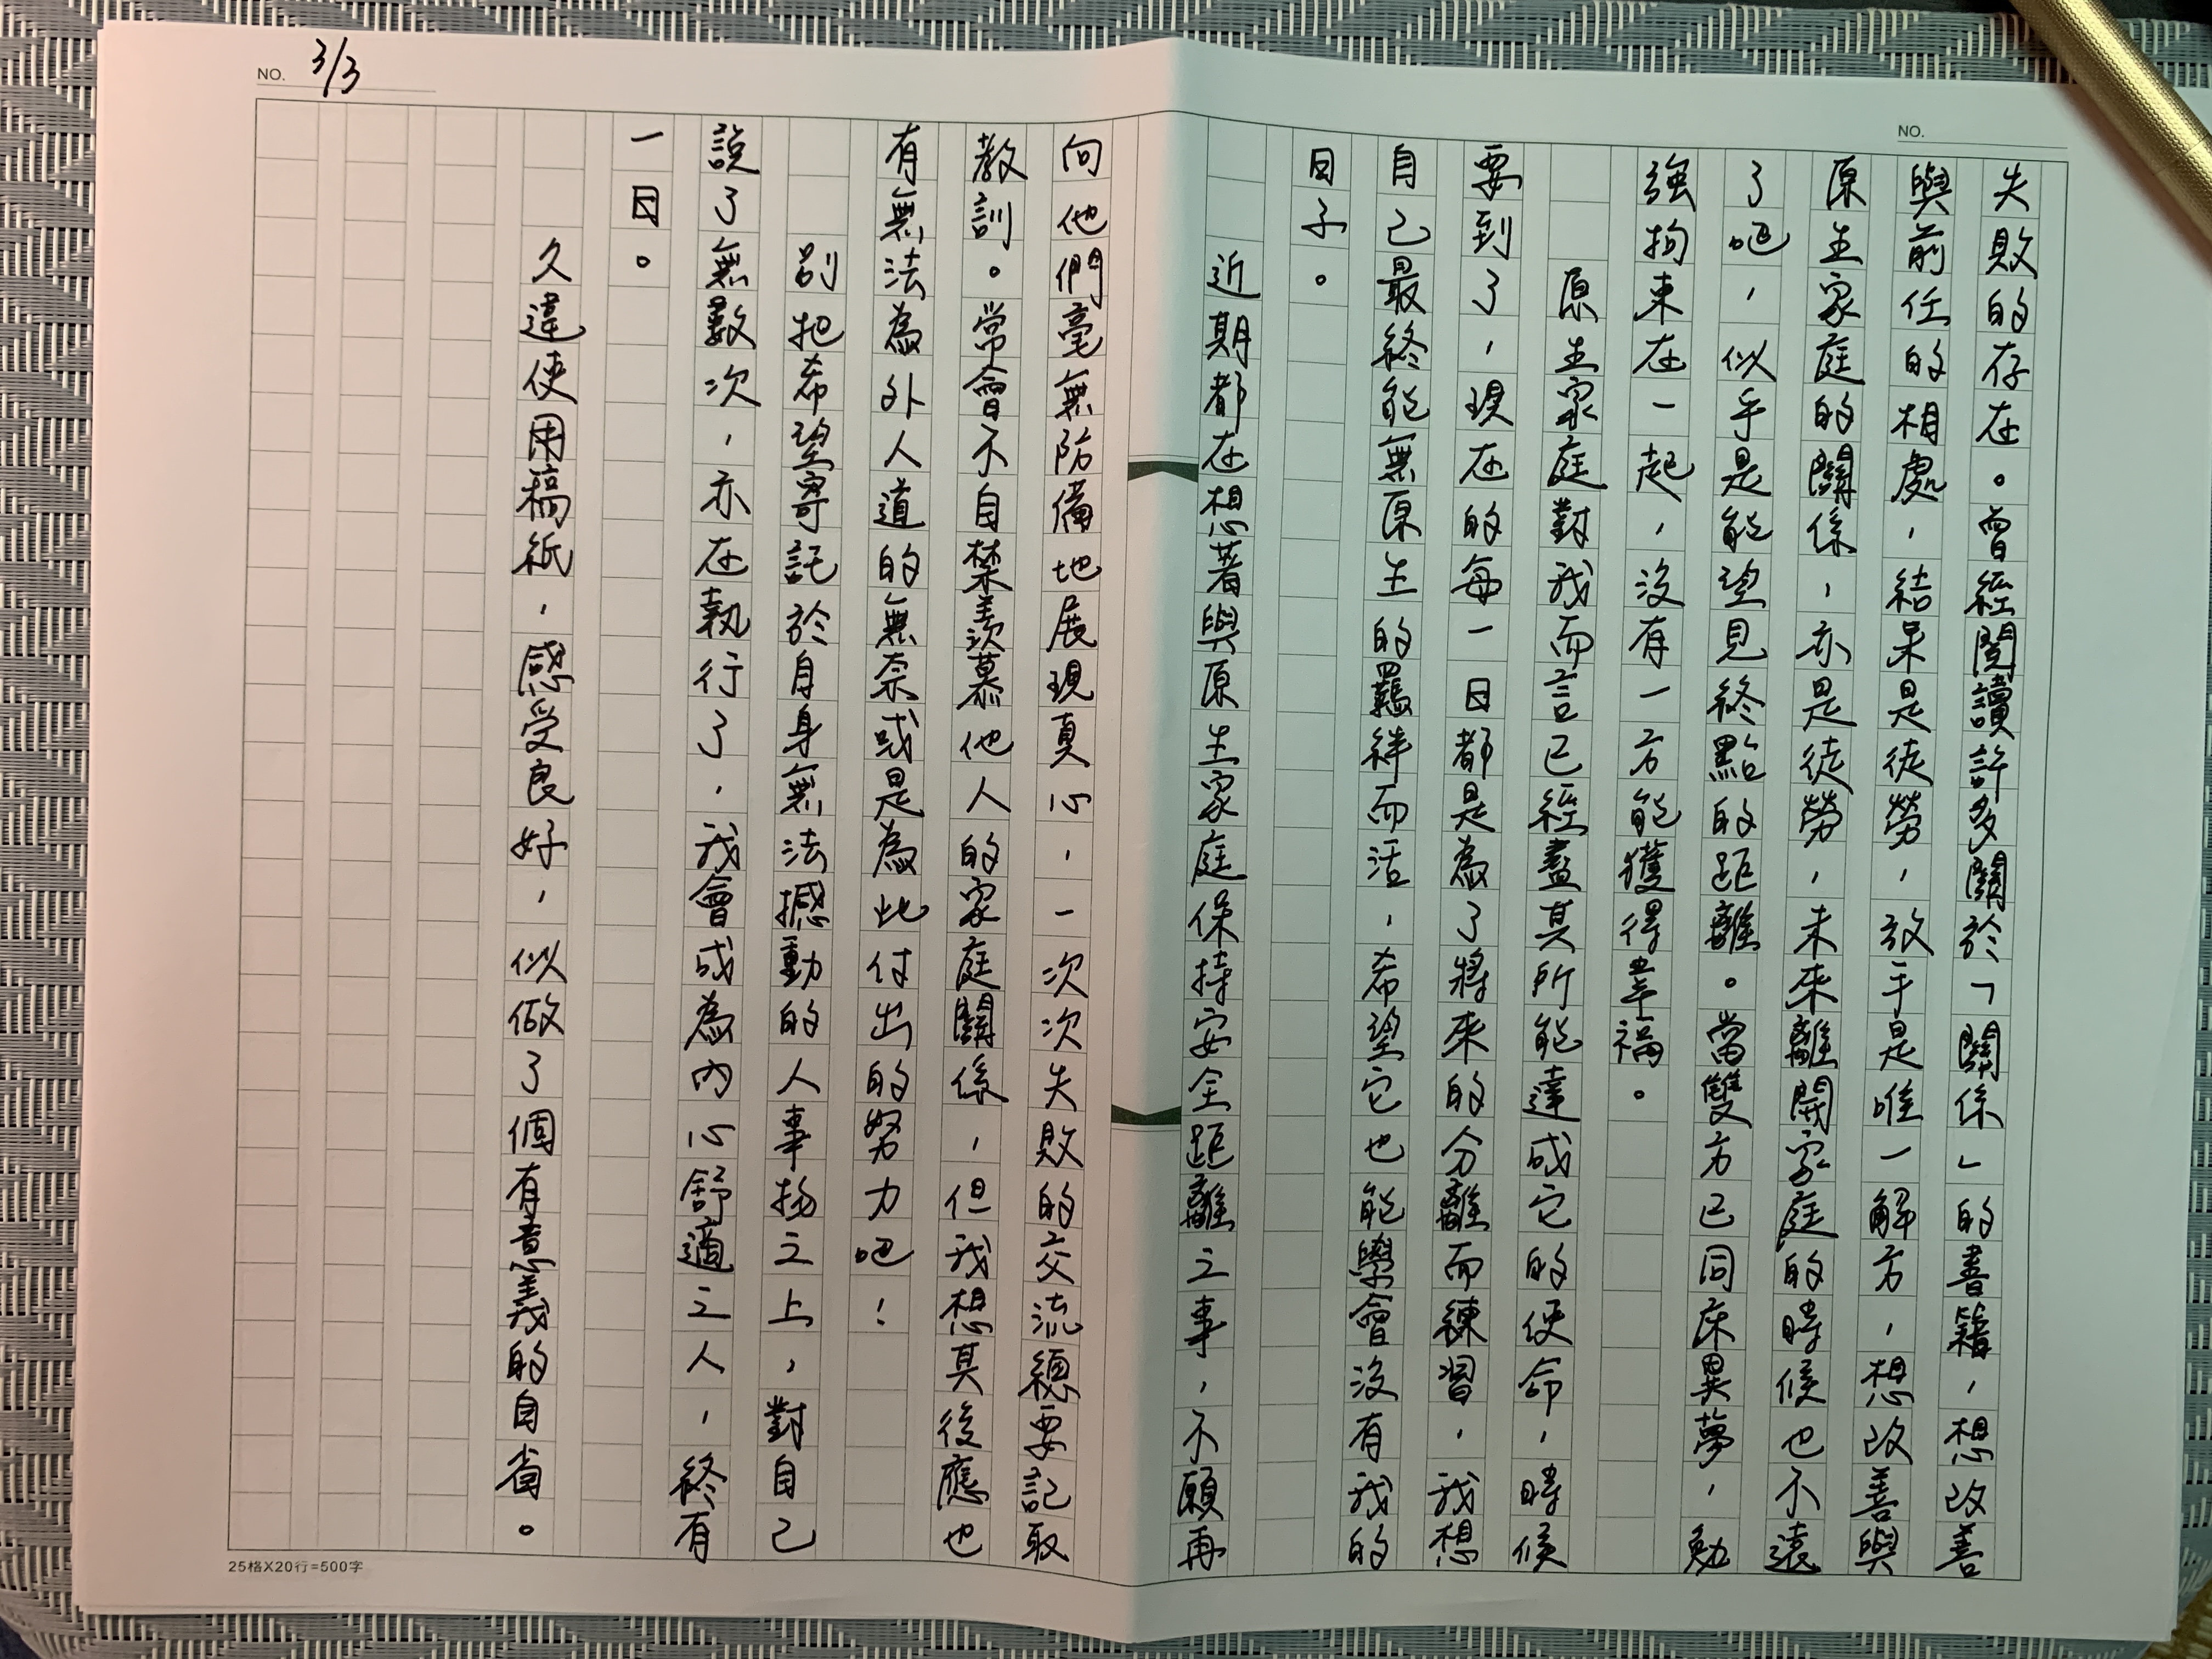 NO.
失敗的存在。曾經閱讀許多關於「關係」的書籍，想改善
與前任的相處，結果是徒勞，放手是唯一解方，想改善與
原生家庭的關係，亦是徒勞，未來離開家庭的時候也不遠
了吧，似乎是能望見終點的距離。當雙方已同床異夢，勉
強拘束在一起，沒有一方能獲得幸福。
原生家庭對我而言已經盡其所能達成它的使命，時候
要到了，現在的每一日都是為了將來的分離而練習，我想
自己最終能無原生的羈絆而活，希望它也能學會沒有我的
日子。
近期都在想著與原生家庭保持安全距離之事，不願再
向他們毫無防備地展現真心，一次次失敗的交流總要記取
教訓。常會不自禁羨慕他人的家庭關係，但我想其後應也
有無法為外人道的無奈或是為此付出的努力吧！
別把希望寄託於自身無法撼動的人事物之上，對自己
說了無數次，亦在執行了，我會成為內心舒適之人，終有
一日。
久違使用稿紙，感受良好，似做了個有意義的自省。
NO. 3/3
25格X20行=500字